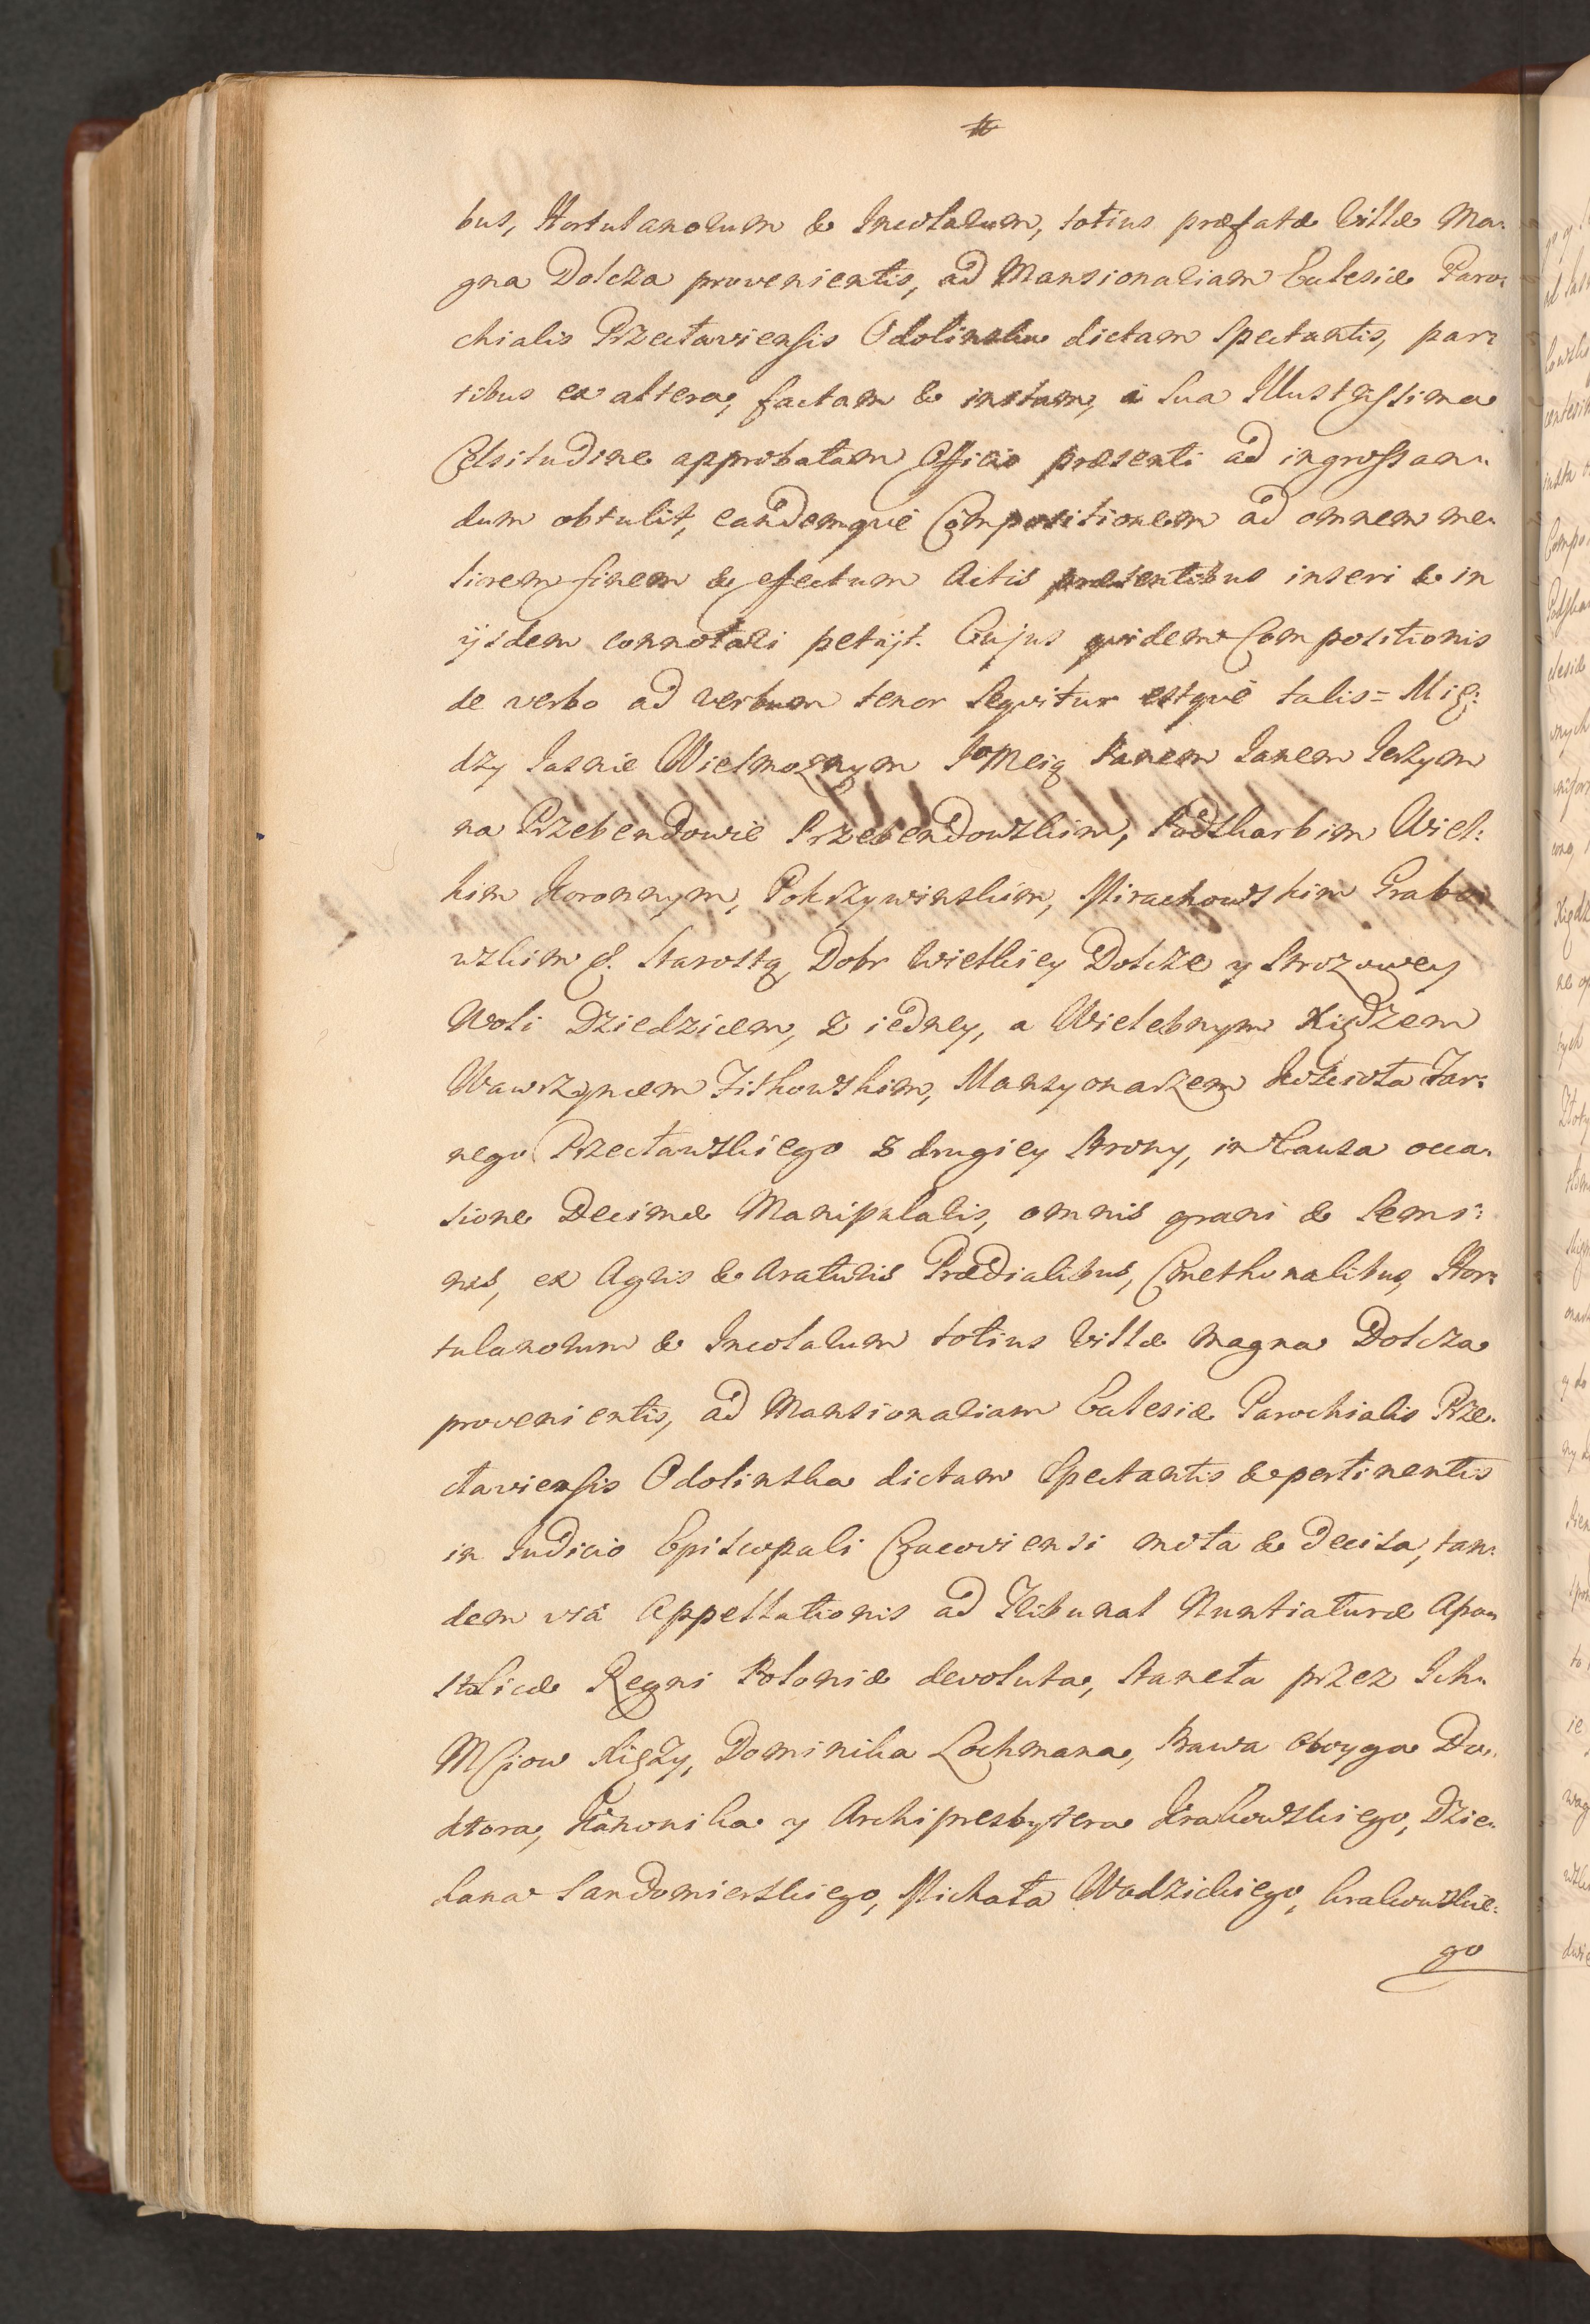 bus, Hortulanorum & Incolarum, totius præfatæ Villæ Ma:
gna Dolcza provenientis, ad Mansionariam Ecclesiæ Paro:
chialis Przecłaviensis Odolinska dictam Spectantis, par:
tibus ex altera, factam & initam, à Sua Illustrissima
Celsitudine approbatam Officio præsenti ad ingrossan:
dum obtulit, eandemque Compositionem ad omnem me:
liorem finem & effectum Actis præsentibus inseri & in
ijsdem connotari petijt. Cujus quidem Compositionis
de verbo ad verbum tenor sequitur estque talis= Mię:
dzy Jasnie Wielmoznym JoMcią Panem Janem Jerzym
na Przebendowie Przebendowskim, Podskarbim Wiel:
kim Koronnym, Pokrzywinskim, Mirachowskim Grabo:
wskim &. Starostą, Dobr Wielkiey Dolcze y Strozowey
Woli Dziedzicem, z iedney, a Wielebnym Xiędzem
Wawrzyncem Fiškowskim, Mansyonarzem Kościoła Far:
nego Przecławskiego z drugiey Strony, in Causa occa:
sione Decimæ Manipularis, omnis grani & Semi:
nis, ex Agris & Araturis Prædialibus, Cmethonalibus, Hor:
tulanorum & Incolarum totius Villæ Magna Dolcza
provenientis, ad Mansionariam Ecclesiæ Parochialis Prze:
cłaviensis Odolinska dictam Spectantis & pertinentis
in Judicio Episcopali Cracoviensi mota & Decisa, tan:
dem via Appellationis ad Tribunal Nuntiaturæ Apo:
stolicæ Regni Poloniæ devoluta, Stanęła przez Ich:
Mciow Xięży, Dominika Lochmana, Prawa Oboyga Do:
ktora, Kanonika y Archipresbytera Krakowskiego, Dzie:
kana Sandomierskiego, Michała Wodzickiego, Krakowskie:
go